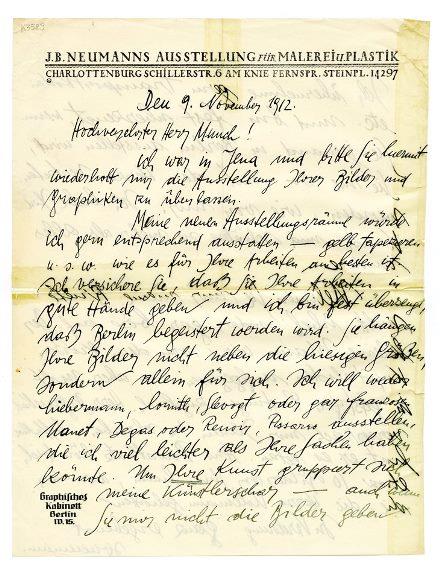 K3583
J.B. NEUMANNS AUSSTELLUNG FÜR MALEREI U. PLASTIK
CHARLOTTENBURG SCHILLERSTR. 6 AM KNIE FERNSPR. STEINPL. 14297
Den 9. November 1912.
Hochverehrter Herr Munch!
ich war in Jena und bitte Sie hiermit
wiederholt mir die Ausstellung Ihrer Bilder und
Graphiken zu überlassen.
Meine neuen Ausstellungsräume würde
ich gern entsprechend ausstatten — gelb tapezieren
u. s. w. wie es für Ihre Arbeiten am besten ist.
Ich versichere Sie, daß Sie Ihre Arbeiten in
gute Hände geben und ich bin fest überzeugt,
daß Berlin begeistert werden wird. Sie hängen
Ihre Bilder nicht neben die hiesigen Großen,
sondern allein für sich. Ich will weder
Liebermann, Corinth, Slevogt oder gar
Manet, Degas oder Renoir, Pissarro ausstellen,
die ich viel leichter als Ihre Sachen haben
könnte. Um Ihre Kunst gruppiert sich
meine Künstlerschar — auch wenn
Sie mir nicht die Bilder geben
Graphisches
Kabinett
Berlin
W. 15.